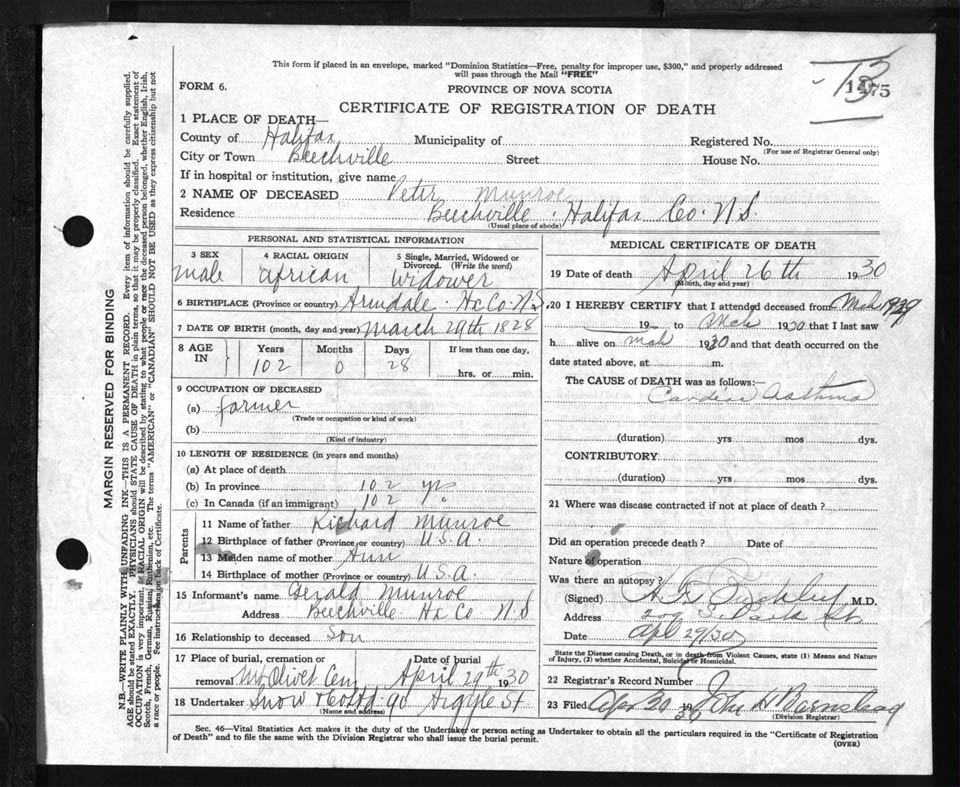 This form if placed in an envelope, marked "Dominion Statistics—Free, penalty for improper use, $300," and properly addressed
will pass through the Mail "FREE"
FORM 6.
PROVINCE OF NOVA SCOTIA
1475
CERTIFICATE OF REGISTRATION OF DEATH
1 PLACE OF DEATH—
County of Halifax Municipality of Registered No.
(For use of Registrar General only)
City or Town Beechville Street House No.
If in hospital or institution, give name
2 NAME OF DECEASED Peter Munroe
Residence Beechville. Halifax Co. N.S.
(Usual place of abode)
PERSONAL AND STATISTICAL INFORMATION
3 SEX 4 RACIAL ORIGIN 5 Single, Married, Widowed or Divorced. (Write the word)
male african Widower
6 BIRTHPLACE (Province or country) Armdale. Hx Co. N.S.
7 DATE OF BIRTH (month, day and year) March 29th 1828
8 AGE IN Years Months Days If less than one day,
102 0 28 hrs. or min.
9 OCCUPATION OF DECEASED
(a) farmer
(Trade or occupation or kind of work)
(b)
(Kind of industry)
10 LENGTH OF RESIDENCE (in years and months)
(a) At place of death
(b) In province 102 yrs
(c) In Canada (if an immigrant) 102 "
Parents
11 Name of father Richard Munroe
12 Birthplace of father (Province or country) U.S.A.
13 Maiden name of mother Ann
14 Birthplace of mother (Province or country) U.S.A.
15 Informant's name Gerald Munroe
Address Beechville Hx Co. N.S
16 Relationship to deceased Son
17 Place of burial, cremation or removal Mt Olivet Cem
Date of burial April 29th 1930
18 Undertaker Snow & Co Ltd 90 Argyle St
(Name and address)
MEDICAL CERTIFICATE OF DEATH
19 Date of death April 26th 1930
(Month, day and year)
20 I HEREBY CERTIFY that I attended deceased from Mch 1929
19 to Mch 1930 that I last saw
h alive on Mch 1930 and that death occurred on the
date stated above, at m.
The CAUSE of DEATH was as follows:—
Cardiac Asthma
(duration) yrs mos dys.
CONTRIBUTORY
(duration) yrs mos dys.
21 Where was disease contracted if not at place of death?
Did an operation precede death? Date of
Nature of operation
Was there an autopsy?
(Signed) M.D.
Address Park St
Date Apl 29/30
State the Disease causing Death, or in death from Violent Causes, state (1) Means and
Nature of Injury, (2) whether Accidental, Suicidal or Homicidal.
22 Registrar's Record Number
23 Filed Apr 30 1930 John H Barnstead
(Division Registrar)
Sec. 46—Vital Statistics Act makes it the duty of the Undertaker or person acting as Undertaker to obtain all the particulars required in the "Certificate of Registration
of Death" and to file the same with the Division Registrar who shall issue the burial permit.
(OVER)
MARGIN RESERVED FOR BINDING
N.B.—WRITE PLAINLY WITH UNFADING INK—THIS IS A PERMANENT RECORD. Every item of information should be carefully supplied.
AGE should be stated EXACTLY. PHYSICIANS should STATE CAUSE OF DEATH in plain terms, so that it may be properly classified. Exact statement of
OCCUPATION is very important. RACIAL ORIGIN will be described by stating to what people or race the deceased person belonged, whether English, Irish,
Scotch, French, German, Russian, Ruthenian, etc. The terms "AMERICAN" or "CANADIAN" SHOULD NOT BE USED as they express citizenship but not
a race or people. See instructions on back of Certificate.